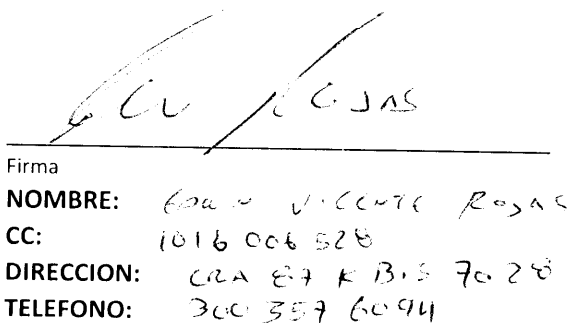 Rojas
Firma
NOMBRE: Edwin Vicente Rojas
CC: 1016 006 528
DIRECCION: CRA 87 K BIS 70 28
TELEFONO: 300 357 6094